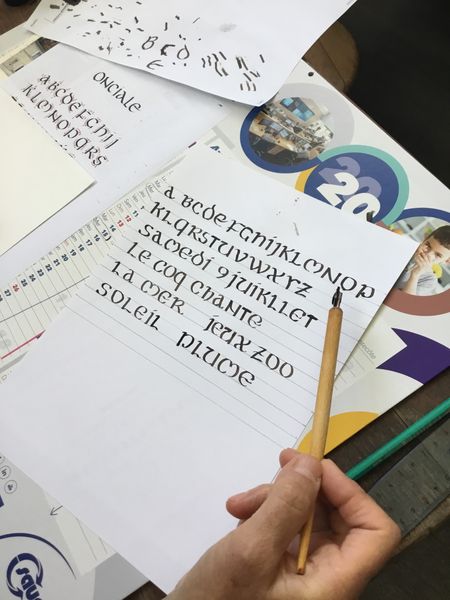 ONCIALE
ABCDEFGHIJ
KLMNOPQRS
20
A BCDEFGHIJKLMNOP
KLQRSTUVWXYZ
SAMEDI 9 JUIKLLET
LE COQ CHANTE
LA MER JEUX ZOO
SOLEIL PLUME